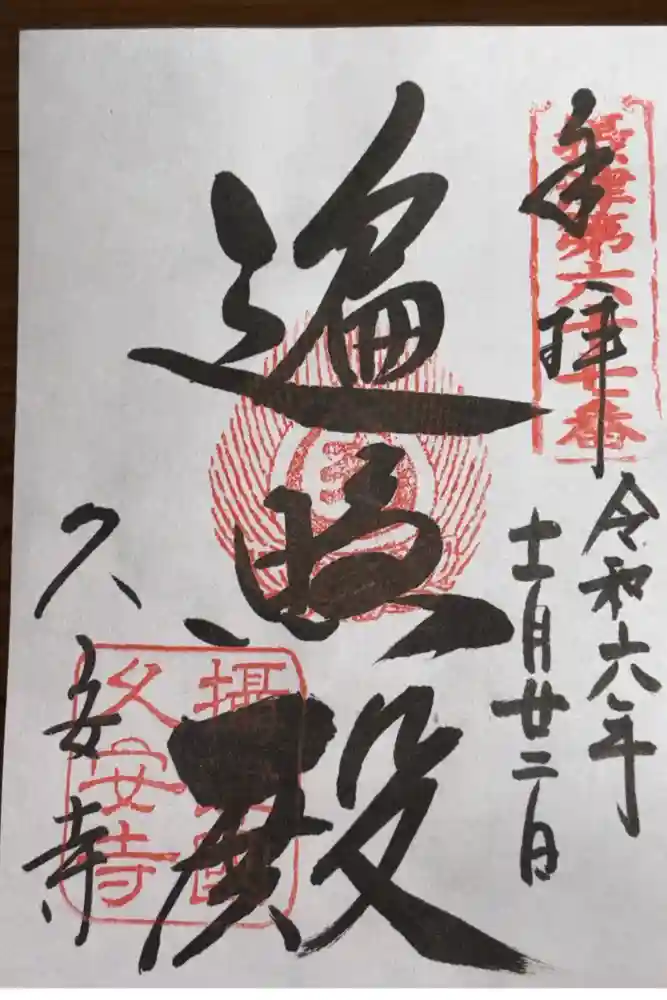 奉拝
攝津第六十七番
令和六年
十一月廿二日
遍照殿
久安寺
攝 國
久安寺